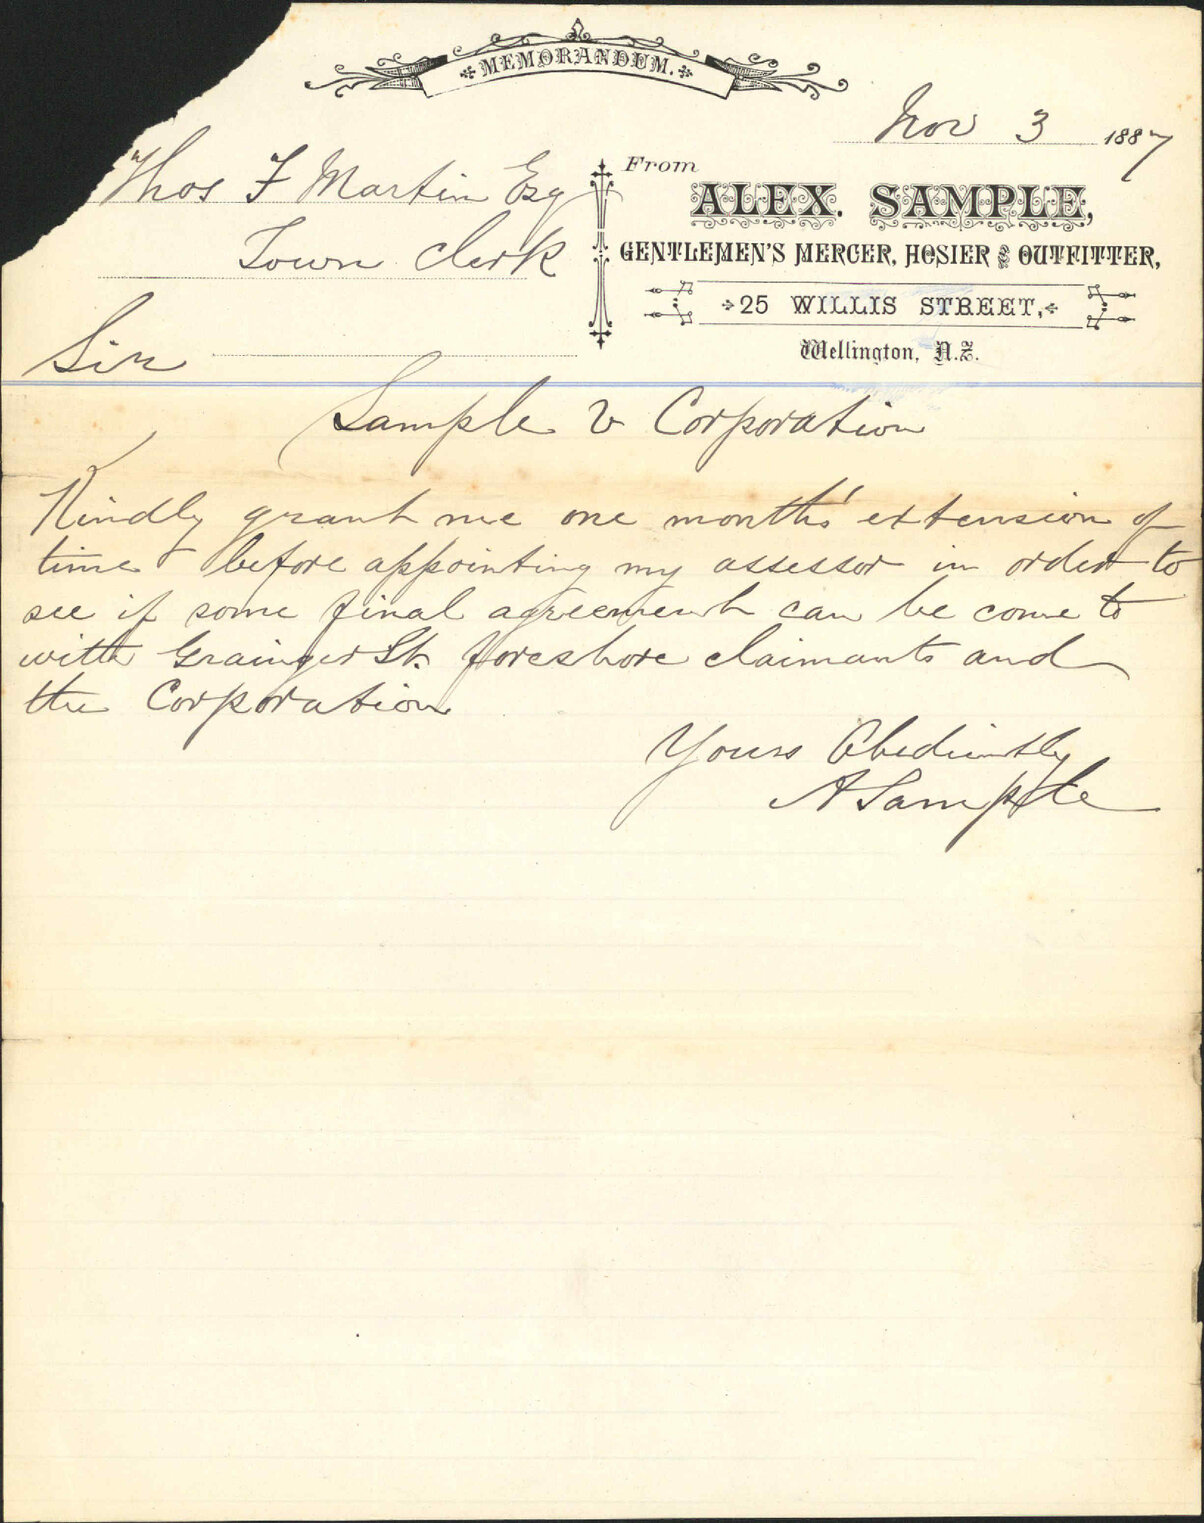 MEMORANDUM.
Nov 3 1887
Thos F Martin Esq
Town Clerk
From
ALEX. SAMPLE,
GENTLEMEN'S MERCER, HOSIER & OUTFITTER,
25 WILLIS STREET,
Wellington, N.Z.
Sir
Sample v Corporation
Kindly grant me one month's extension of
time before appointing my assessor in order to
see if some final agreement can be come to
with Grainger St. foreshore claimants and
the Corporation
Yours Obediently
A Sample